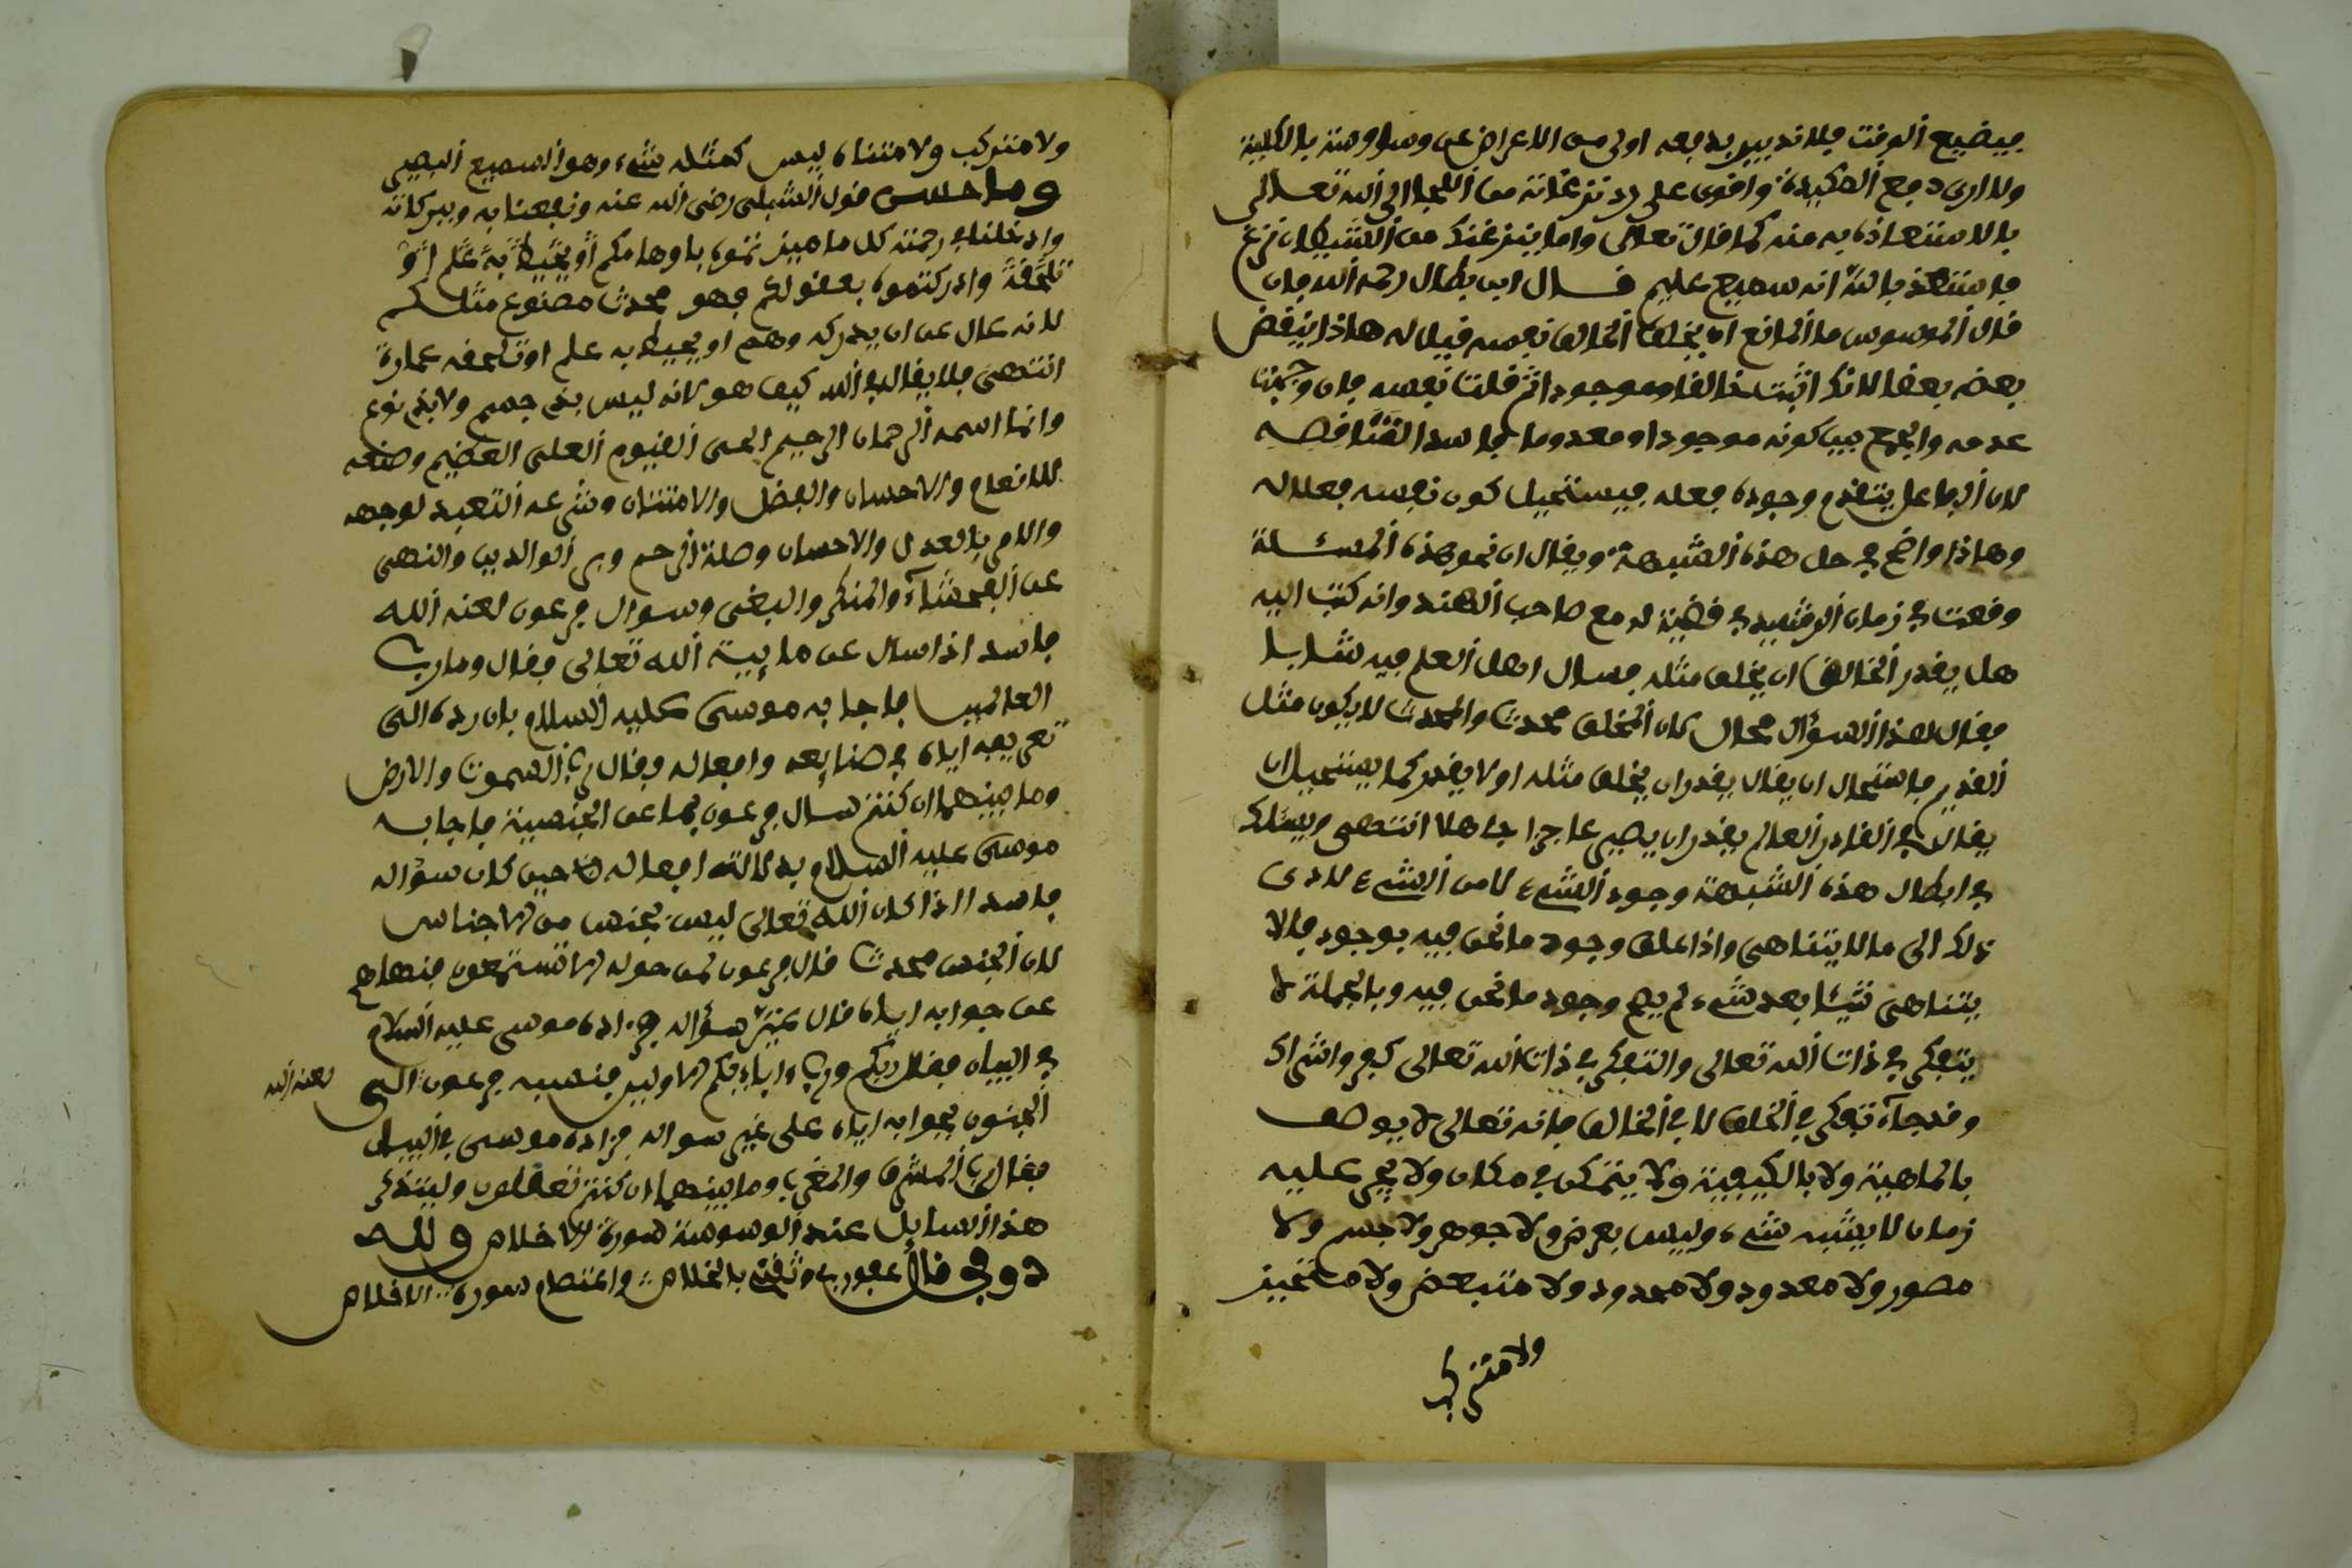 فيضيع الوقت فلا تدبير يدفعه اولى من الاعراض عن وساوسه بالكلية
ولا ارى دفع المكيدة واقوى على رد نزغاته من اللجا الى الله تعالى
بالاستعاذة به منه كما قال تعالى واما ينزغنك من الشيطان نزغ
فاستعذ بالله انه سميع عليم قال ابن بطال رحمه الله فان
قال الموسوس ما المانع ان يخلق الخالق نفسه فيقال له هاذا ينقض
بعضه بعضا لانك اثبت خالقا وموجودا ثم قلت نفسه فان وجبنا
عدمه والجمع بين كونه موجودا ومعدوما فاسد التناقضه
لان الفاعل يتقدم وجوده فعله فيستحيل كون نفسه فعلا له
وهاذا واضح في حل هذه الشبهة ويقال ان نحو هذه المسئلة
وقعت في زمان الرشيد في قضية له مع صاحب الهند وانه كتب اليه
هل يقدر الخالق ان يخلق مثله فسال اهل العلم فيه شابا
فقال هذا السؤال محال لان الخلق محدث والمحدث لا يكون مثل
القديم فاستحال ان يقال يقدر ان يخلق مثله او لا يقدر كما يستحيل ان
يقال في القادر العالم يقدر ان يصير عاجزا جاهلا انتهى ويسلك
في ابطال هذه الشبهة وجود الشيء لا من الشيء لادى
ذلك الى ما لا يتناهى واذا علق وجود ما نحن فيه بوجود ما لا
يتناهى شيئا بعد شيء لم يصح وجود ما نحن فيه وبالجملة لا
يتفكر في ذات الله تعالى والتفكر في ذات الله تعالى كفر واشراك
وقد جاء تفكر في الخلق لا في الخالق فانه تعالى لا يوصف
بالماهية ولا بالكيفية ولا يتمكن في مكان ولا يجري عليه
زمان لا يشبه شيء وليس بعرض ولا جوهر ولا جسم ولا
مصور ولا معدود ولا محدود ولا متبعض ولا متحيز
ولا متركب
ولا متركب ولا متناه ليس كمثله شيء وهو السميع البصير
وما حسن قول الشبلي رضي الله عنه ونفعنا به وببركاته
وادخلنا في رحمته كل ما ميزتموه باوهامكم او يحيط به علم او
تلحقه وادركتموه بعقولكم فهو محدث مصنوع مثلكم
لانه عال عن ان يدركه وهم او يحيط به علم او تلحقه عبارة
انتهى فلا يقال في الله كيف هو لانه ليس بذي جسم ولا بذي نوع
وانما اسمه الرحمان الرحيم الحي القيوم العلي العظيم وصنعه
للانعام والاحسان والفضل والامتنان وشرعه التعبد لوجهه
والامر بالعدل والاحسان وصلة الرحم وبر الوالدين والنهي
عن الفحشاء والمنكر والبغي وسوال فرعون لعنه الله
فاسد اذا سال عن مايية الله تعالى فقال وما رب
العالمين فاجابه موسى عليه السلام بان رده الى
تعريفه اياه في صنايعه وافعاله وقال رب السموت والارض
وما بينهما ان كنتم سال فرعون بما عن الجنسية فاجابه
موسى عليه السلام بدلالة افعاله حين كان سؤاله
فاسدا اذا كان الله تعالى ليس بجنس من الاجناس
لان الجنس محدث قال فرعون لمن حوله الا تستمعون منهاهم
عن جوابه اياه قال غير سؤاله فزاده موسى عليه السلام
في البيان فقال ربكم ورب ءابايكم الاولين فنسبه فرعون الى
لعنه الله
الجنون بجوابه اياه على غير سواله فزاده موسى في البيان
فقال رب المشرق والمغرب وما بينهما ان كنتم تعقلون وليتذكر
هذا السايل عند الوسوسة سورة الاخلاص ولله
در من قال غفور وثقني بالخلاص واعتصام سورة الاخلاص